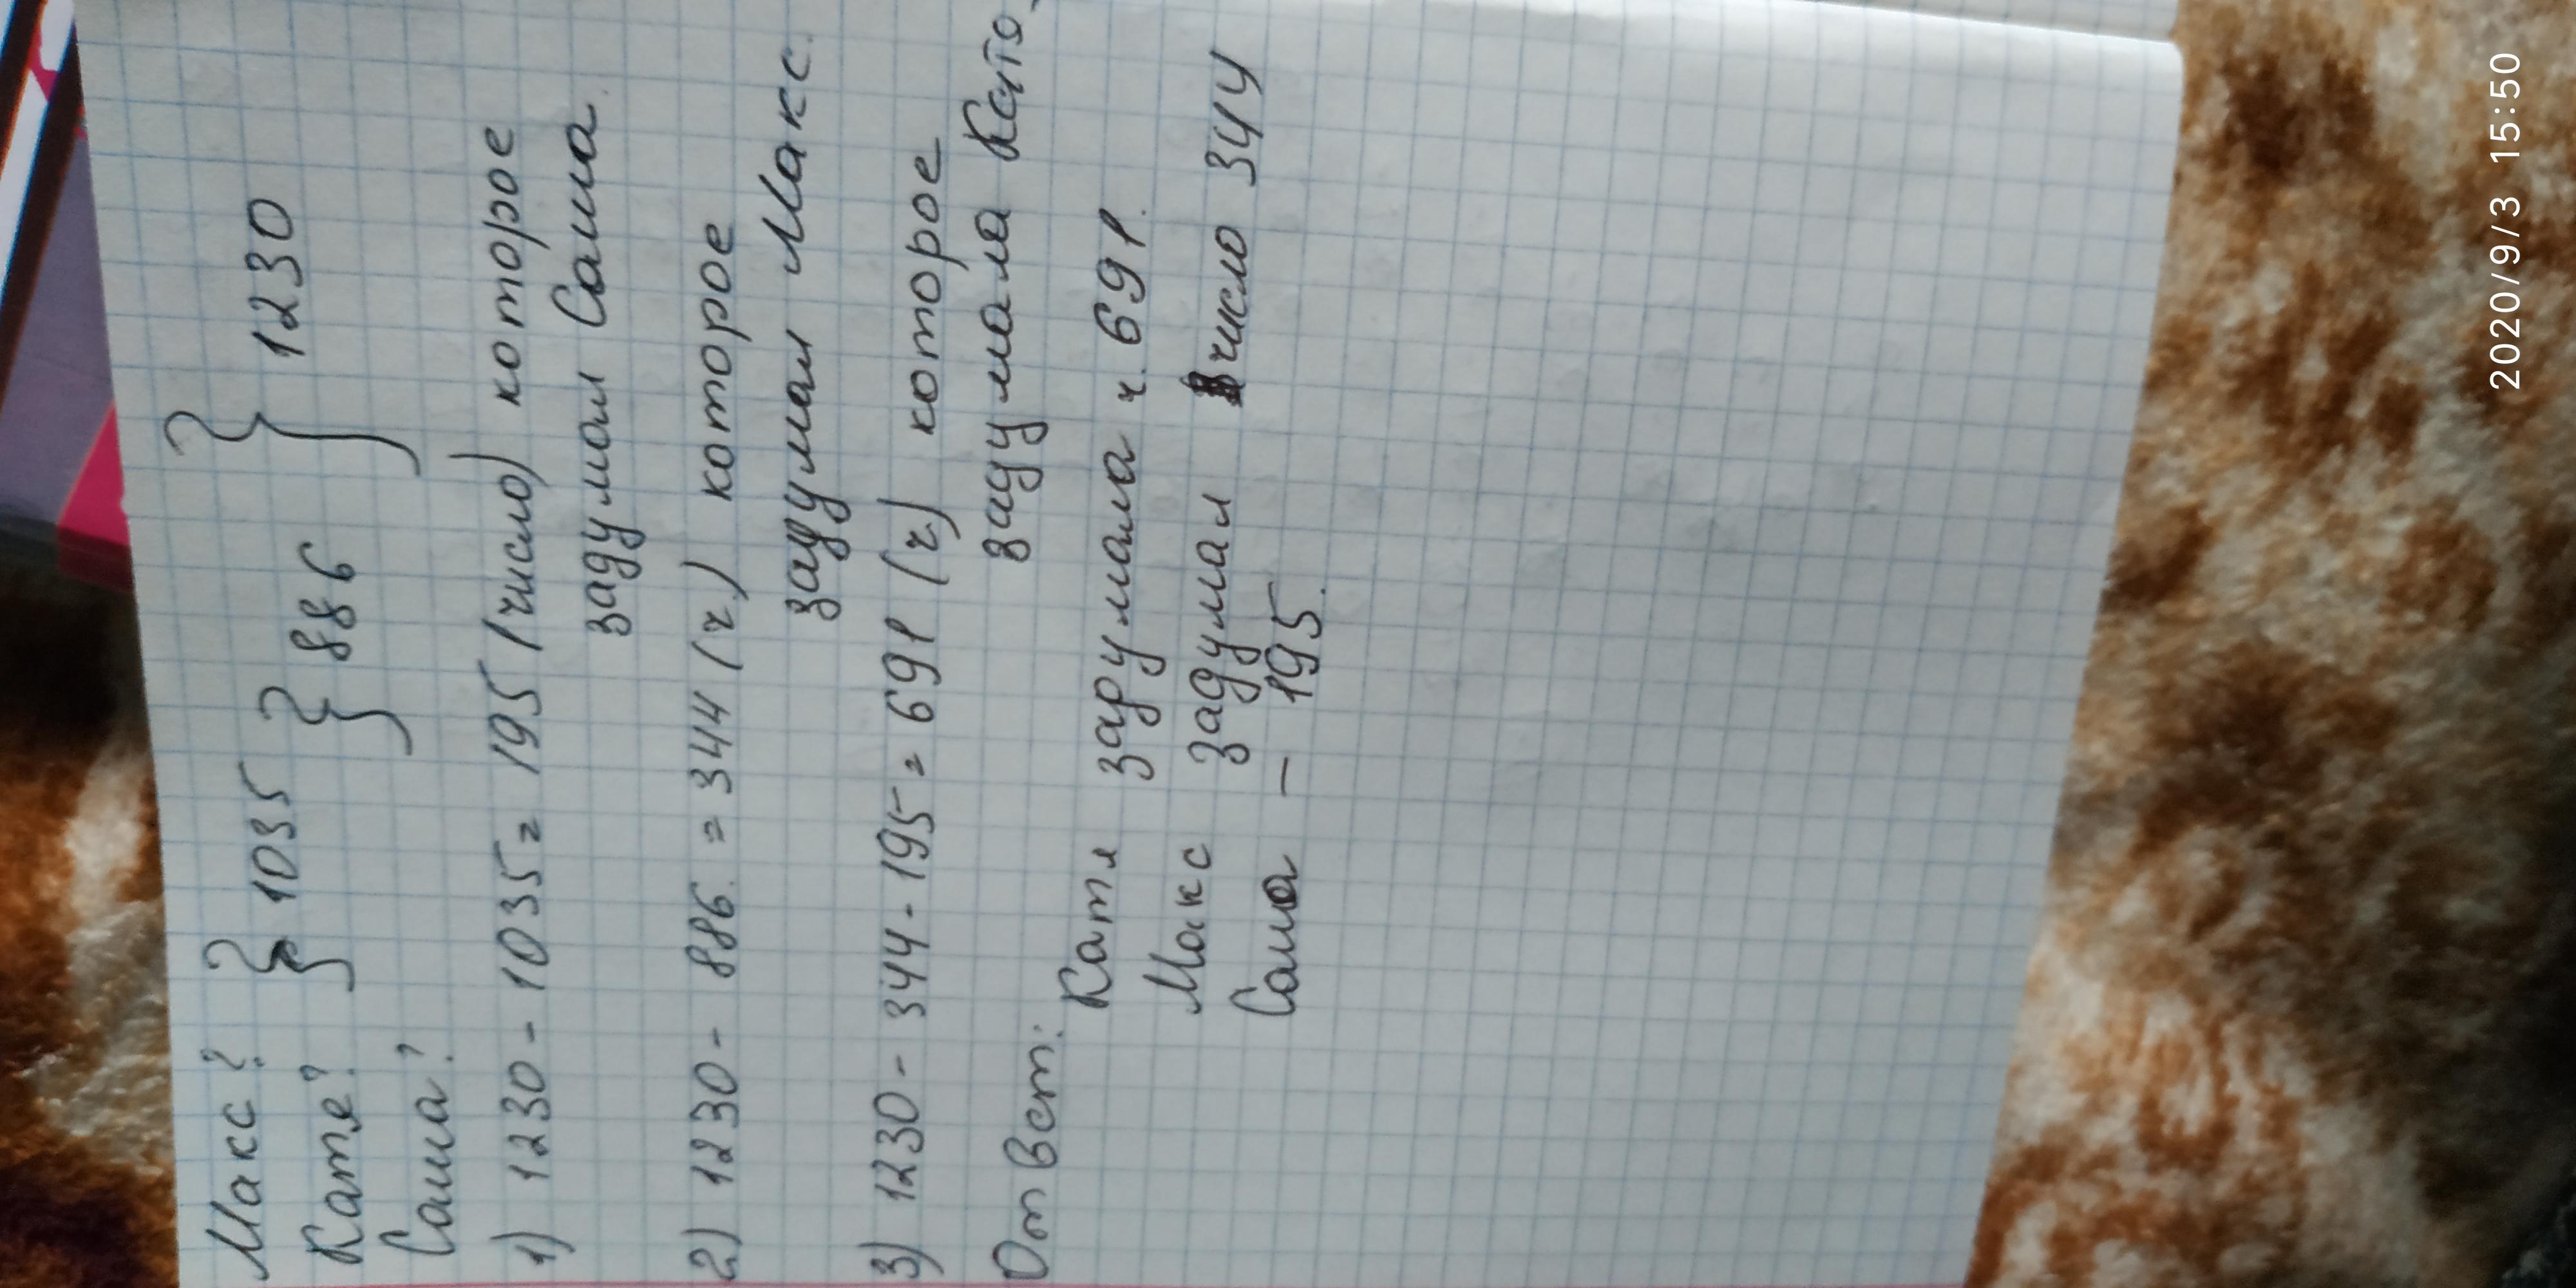 Макс ? } 1035 } 1230
Катя ? } 886
Саша ?
1) 1230 - 1035 = 195 (число) которое
задумал Саша.
2) 1230 - 886 = 344 (ч.) которое
задумал Макс.
3) 1230 - 344 - 195 = 691 (ч) которое
задумала Катя
Ответ: Катя задумала ч. 691.
Макс задумал число 344
Саша - 195.
2020/9/3 15:50